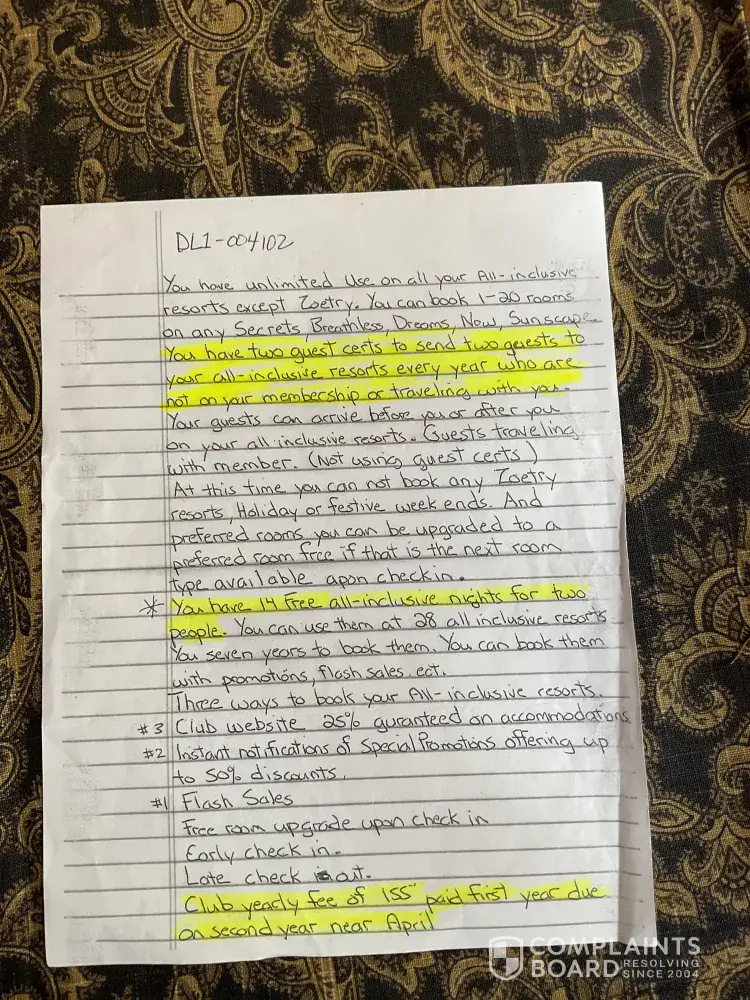 DL1-004102
You have unlimited Use on all your All-inclusive
resorts except Zoetry. You can book 1-20 rooms
on any Secrets, Breathless, Dreams, Now, Sunscape.
You have two guest certs to send two guests to
your all-inclusive resorts every year who are
not on your membership or traveling with you.
Your guests can arrive before you or after you
on your all inclusive resorts. Guests traveling
with member. (Not using guest certs)
At this time you can not book any Zoetry
resorts, Holiday or festive week ends. And
preferred rooms you can be upgraded to a
preferred room free if that is the next room
type available apon checkin.
* You have 14 Free all-inclusive nights for two
people. You can use them at 28 all inclusive resorts
You seven years to book them. You can book them
with promotions, flash sales, ect.
Three ways to book your All-inclusive resorts.
#3 Club website 25% guranteed on accommodations
#2 Instant notifications of Special Promotions offering up
to 50% discounts.
#1 Flash Sales
Free room upgrade upon check in
Early check in.
Late check out.
Club yearly fee of 155 paid first year due
on second year near April
COMPLAINTS
BOARD RESOLVING
SINCE 2004